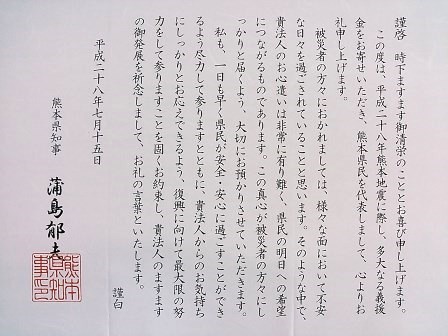 謹啓 時下ますます御清栄のこととお喜び申し上げます。
この度は、平成二十八年熊本地震に際し、多大なる義援
金をお寄せいただき、熊本県民を代表しまして、心よりお
礼申し上げます。
被災者の方々におかれましては、様々な面において不安
な日々を過ごされていることと思います。そのような中で、
貴法人のお心遣いは非常に有り難く、県民の明日への希望
につながるものであります。この真心が被災者の方々にし
っかりと届くよう、大切にお預かりさせていただきます。
私も、一日も早く県民が安全・安心に過ごすことができ
るよう尽力して参りますとともに、貴法人からのお気持ち
にしっかりとお応えできるよう、復興に向けて最大限の努
力をして参りますことを固くお約束し、貴法人のますます
の御発展を祈念しまして、お礼の言葉といたします。
謹白
平成二十八年七月十五日
熊本県知事 蒲島郁夫
熊本
県知
事印